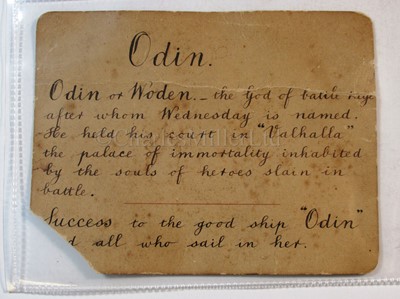 Odin.
Odin or Woden. - the God of battle
after whom Wednesday is named.
He held his court in "Valhalla"
the palace of immortality inhabited
by the souls of heroes slain in
battle.
Success to the good ship "Odin"
all who sail in her.
Charles Miller Ltd